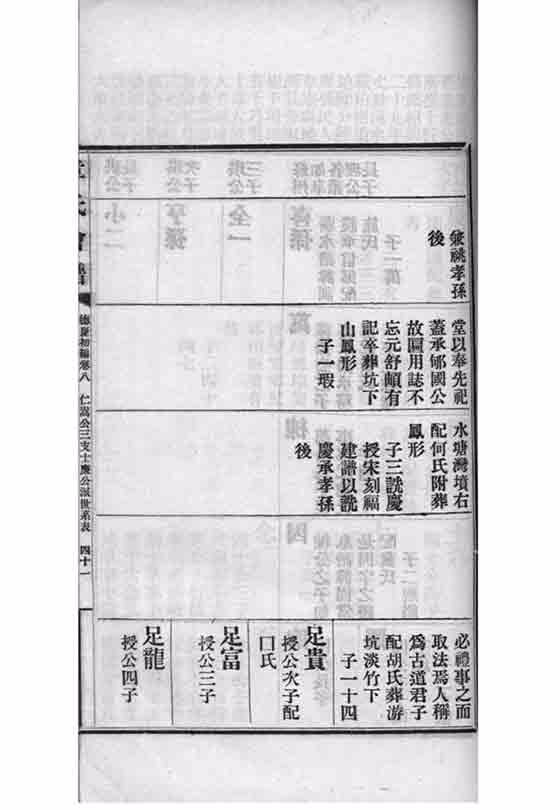 兼祧孝孫
後
堂以奉先祀
蓋承郇國公
故圖用誌不
忘元舒頗有
記卒葬坑下
山鳳形
子一瑕
水塘灣墳右
配何氏附葬
鳳形
子三詵慶
授宋刻福
建譜以詵
慶承孝孫
後
必禮事之而
取法焉人稱
爲古道君子
配胡氏葬游
坑淡竹下
子一十四
足貴
授公次子配
口氏
足富
授公三子
足龍
授公四子
氏會譜
德夏初編卷八
仁嵩公三支士慶公派世系表
四十一